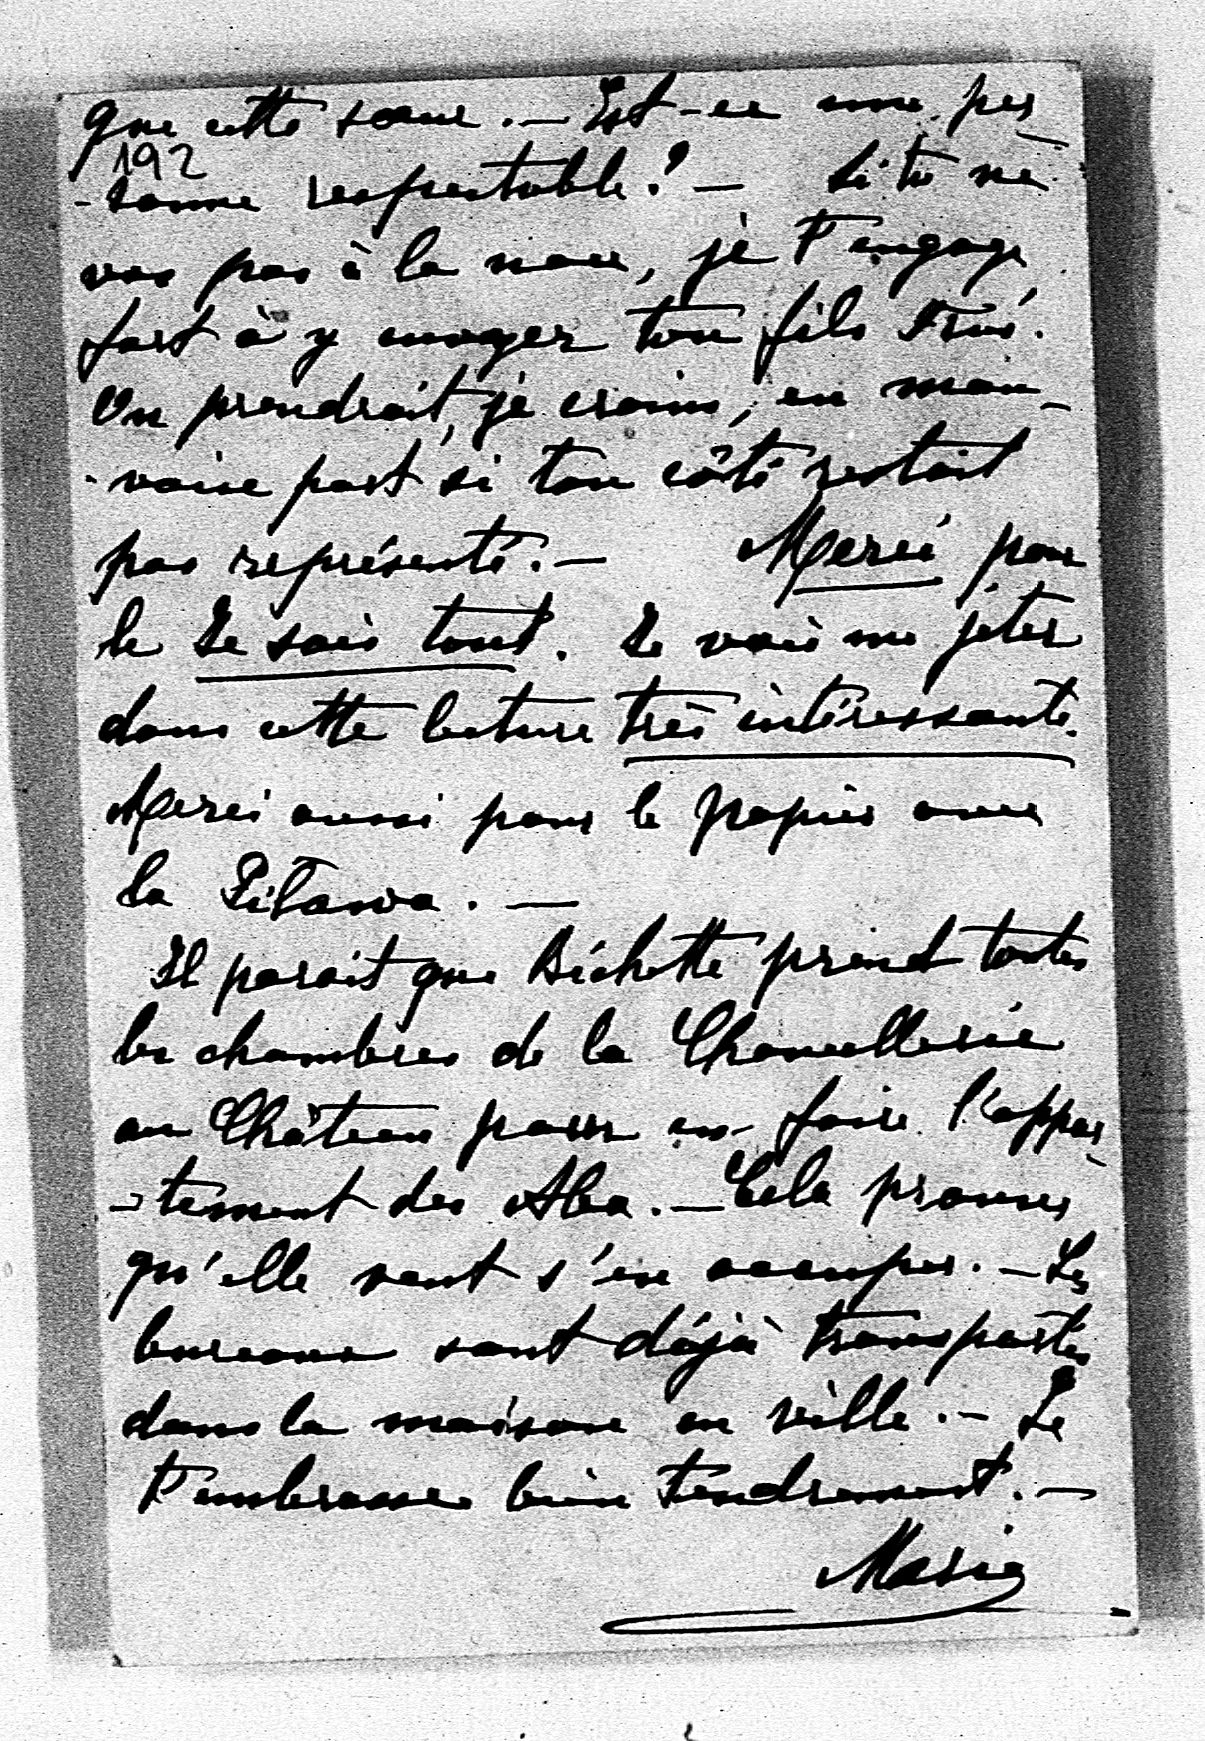 que cette soeur. — Est-ce une per
192
-sonne respectable? — Si tu ne
vas pas à la noce, je t'engage
fort à y envoyer ton fils
On prendrait, je crains, en mau-
-vaise part si ton côté restait
pas représenté. — Merci pour
le Je sais tout. Je vais me jeter
dans cette lecture très intéressante.
Merci aussi pour le papier avec
la Pilawa. —
Il parait que Bichette prend toutes
les chambres de la Chancellerie
au Château pour en faire l'appar
-tement des Alba. — Cela prouve
qu'elle veut s'en occuper. — Les
bureaux sont déjà transportés
dans la maison en ville. — Je
t'embrasse bien tendrement. —
Marie